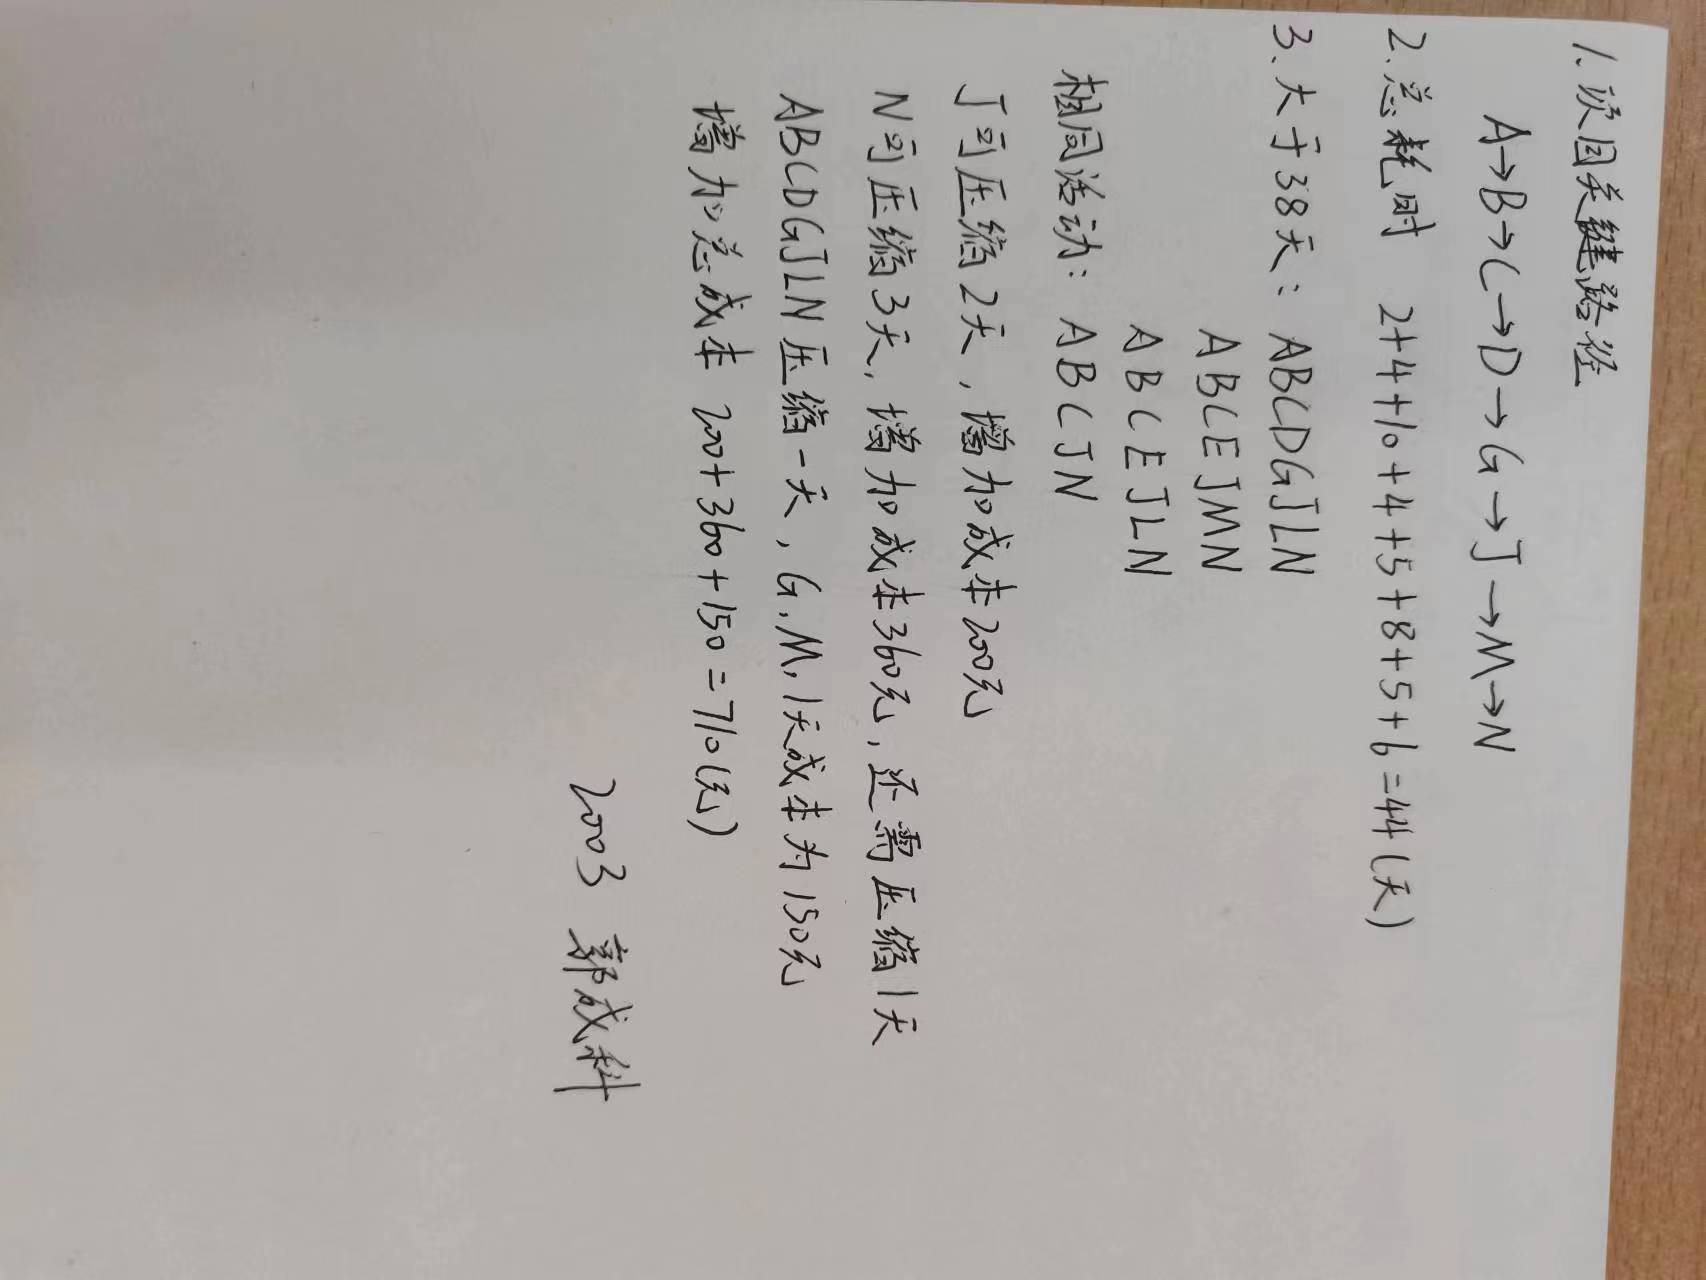 1. 项目关键路径
A→B→C→D→G→J→M→N
2. 总耗时 2+4+10+4+5+8+5+6=44(天)
3. 大于38天: ABCDGJLN
ABCEJMN
ABCEJLN
相同活动: ABCJN
J可压缩2天,增加成本200元
N可压缩3天,增加成本360元,还需压缩1天
ABCDGJLN压缩一天,G,M,1天成本为150元
增加总成本 200+360+150=710(元)
2003 郭成科